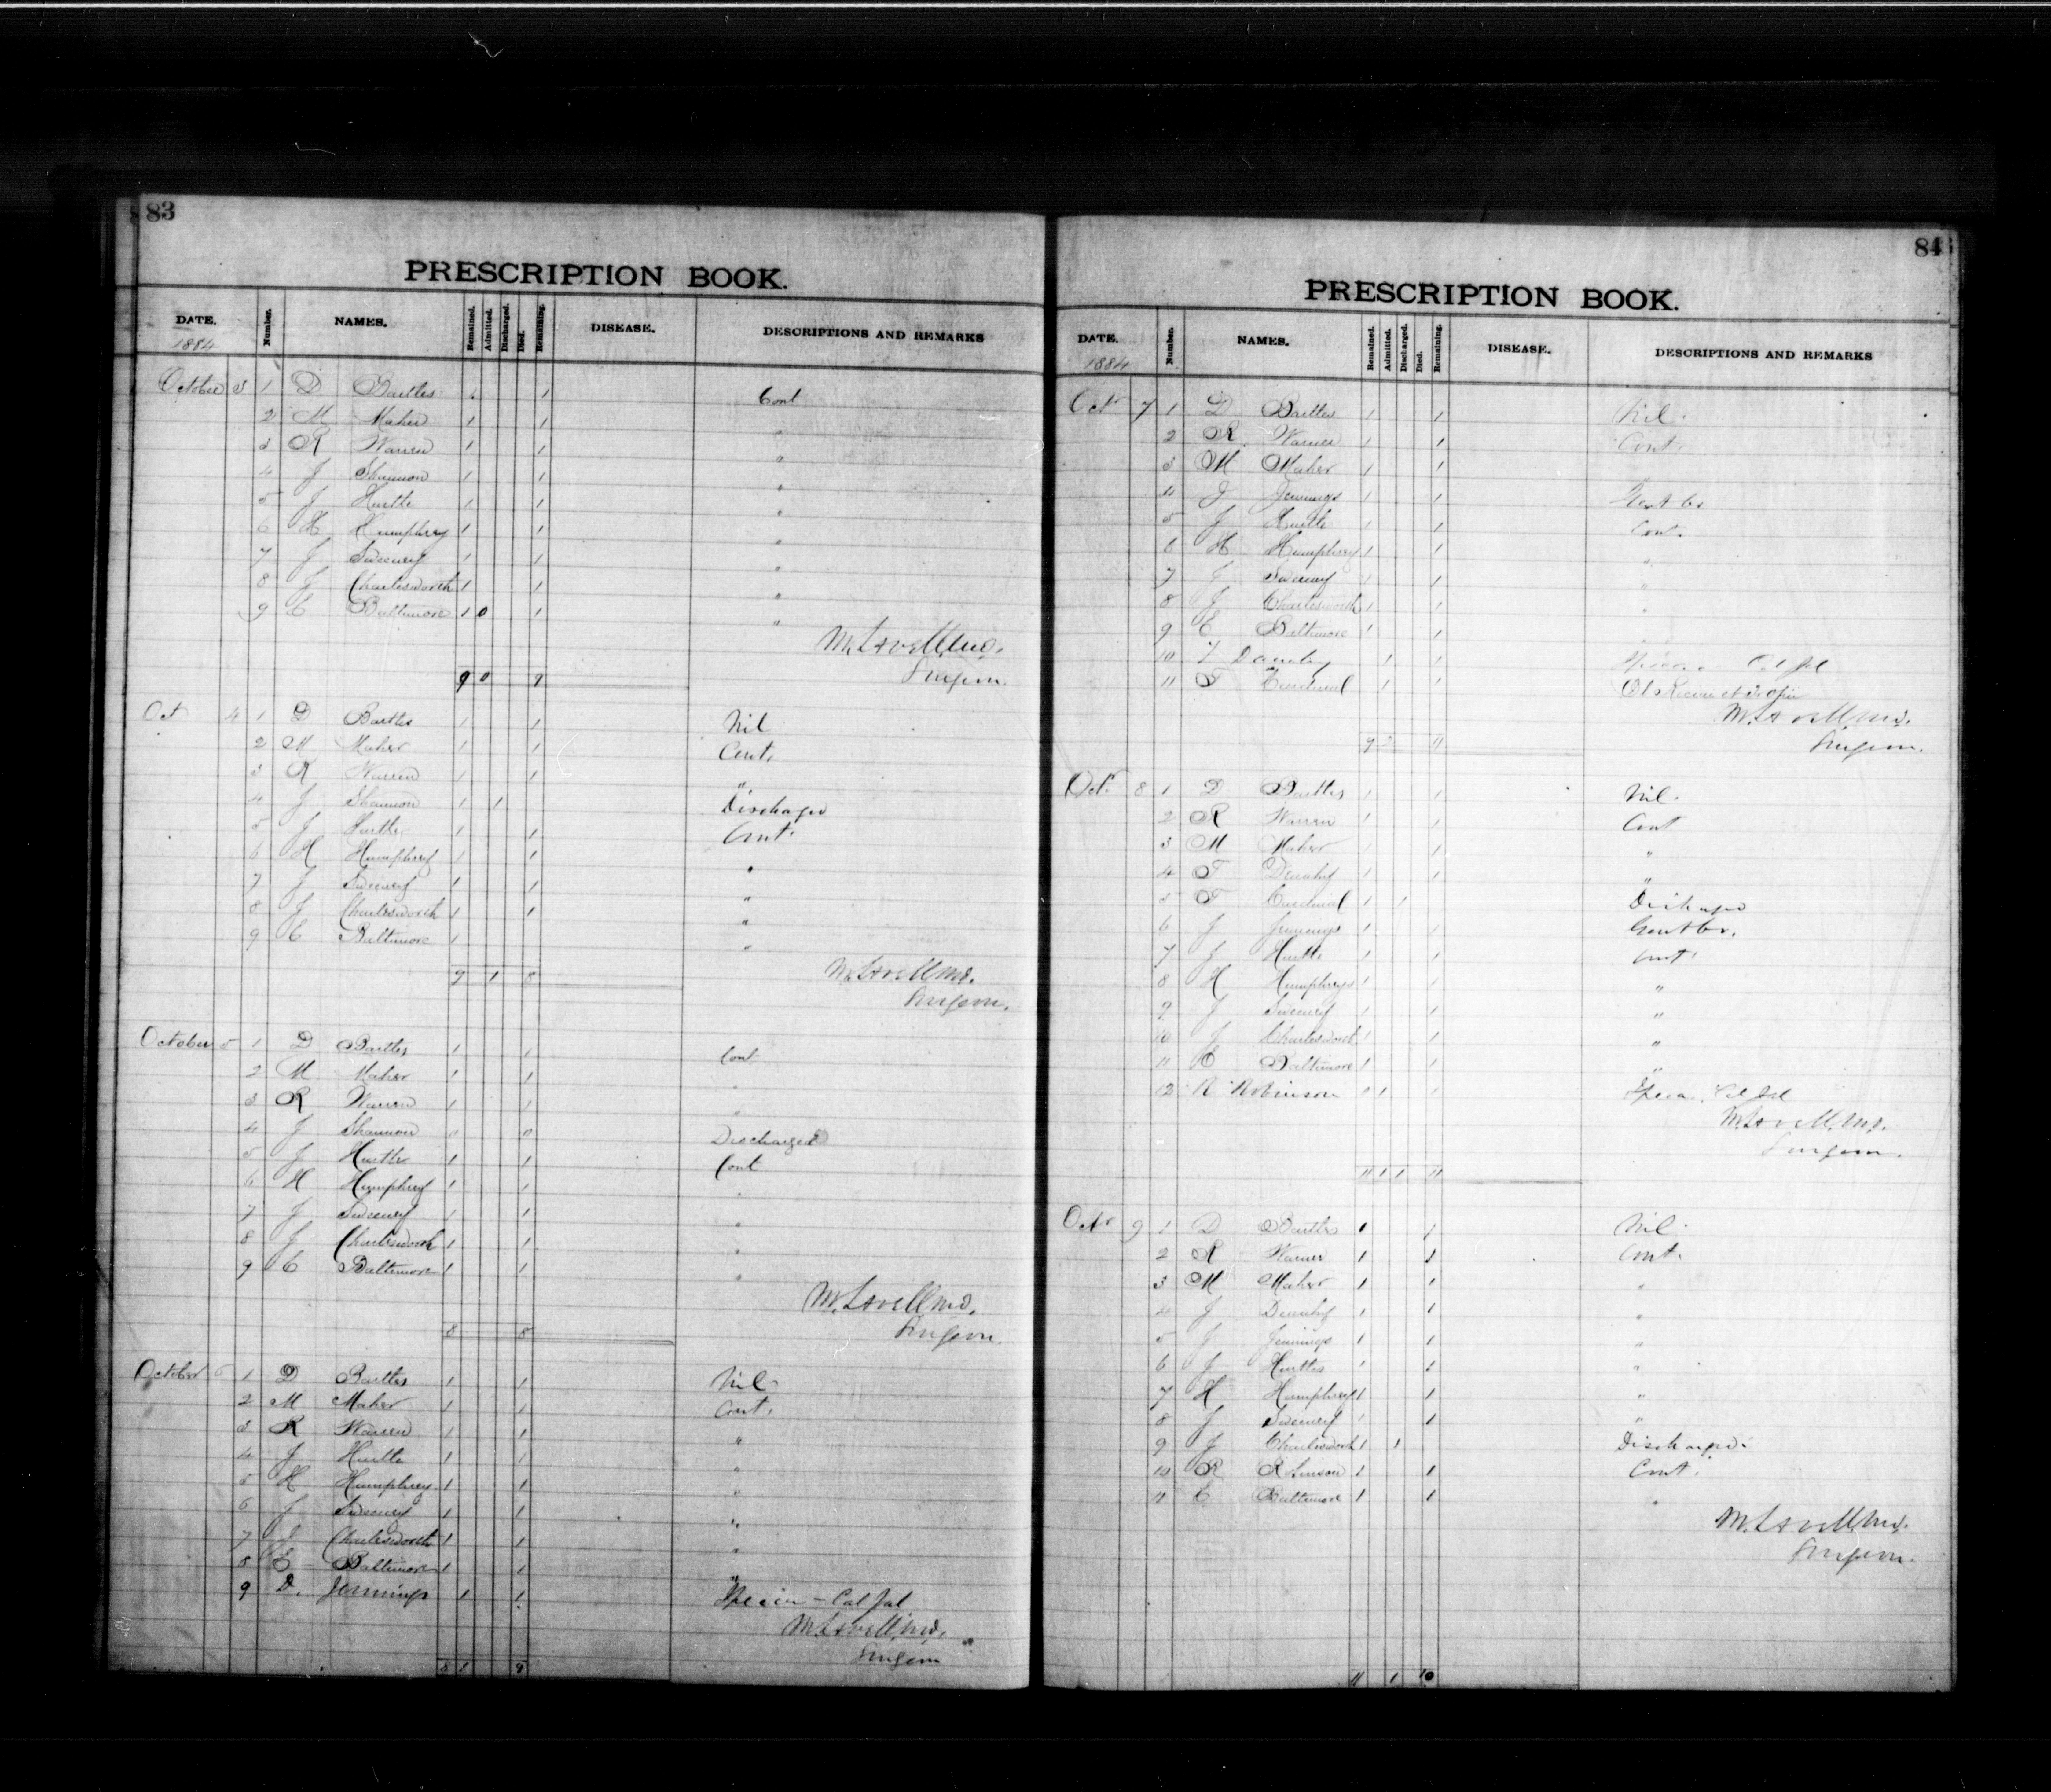 83
PRESCRIPTION BOOK.
DATE. Number. NAMES. Remained. Admitted. Discharged. Died. Remaining. DISEASE. DESCRIPTIONS AND REMARKS
1884
October 3 1 D Bartles 1 1 Cont
2 M Maher 1 1 "
3 R Warren 1 1 "
4 J Shannon 1 1 "
5 J Hurtle 1 1 "
6 H Humphrey 1 1 "
7 J Sweeney 1 1 "
8 J Charlesworth 1 1 "
9 E Baltimore 1 0 1 "
M. Lavell, M.D.
Surgeon.
9 0 9
Oct 4 1 D Bartles 1 1 Nil
2 M Maher 1 1 Cont.
3 R Warren 1 1 "
4 J Shannon 1 1 Discharged
5 J Hurtle 1 1 Cont.
6 H Humphrey 1 1 "
7 J Sweeney 1 1 "
8 J Charlesworth 1 1 "
9 E Baltimore 1 "
9 1 8 M. Lavell M.D.
Surgeon.
October 5 1 D Bartles 1 1 Cont
2 M Maher 1 1 "
3 R Warren 1 1 "
4 J Shannon 0 0 Discharged
5 J Hurtle 1 1 Cont
6 H Humphrey 1 1 "
7 J Sweeney 1 1 "
8 J Charlesworth 1 1 "
9 E Baltimore 1 1 "
M. Lavell M.D.
8 8 Surgeon
October 6 1 D Bartles 1 1 Nil
2 M Maher 1 1 Cont.
3 R Warren 1 1 "
4 J Hurtle 1 1 "
5 H Humphrey 1 1 "
6 J Sweeney 1 1 "
7 J Charlesworth 1 1 "
8 E Baltimore 1 1 "
9 D. Jennings 1 1 - Cal Jal
M. Lavell, M.D.
Surgeon
8 1 9
84
PRESCRIPTION BOOK.
DATE. Number. NAMES. Remained. Admitted. Discharged. Died. Remaining. DISEASE. DESCRIPTIONS AND REMARKS
1884
Oct 7 1 D Bartles 1 1 Nil.
2 R. Warren 1 1 Cont.
3 M Maher 1 1
4 J Jennings 1 1
5 J Hurtle 1 1 Cont.
6 H Humphrey 1 1 "
7 J Sweeney 1 1 "
8 J Charlesworth 1 1 "
9 E Baltimore 1 1
10 1 1 Cal Jal
11 F Cardinal 1 1
M. Lavell M.D.
9 2 11 Surgeon.
Oct. 8 1 D Bartles 1 1 Nil.
2 R Warren 1 1 Cont
3 M Maher 1 1 "
4 F 1 1 "
5 F Cardinal 1 1 Discharged
6 J Jennings 1 1
7 J Hurtle 1 1 Cont.
8 H Humphreys 1 1 "
9 J Sweeney 1 1 "
10 J Charlesworth 1 1 "
11 E Baltimore 1 1 "
12 R Robinson 0 1 1 Cal Jal
M. Lavell, M.D.
Surgeon.
11 1 1 11
Oct 9 1 D Bartles 1 1 Nil.
2 R Warner 1 1 Cont.
3 M Maher 1 1 "
4 J 1 1 "
5 J Jennings 1 1 "
6 J Hurtles 1 1 "
7 H Humphrey 1 1 "
8 J Sweeney 1 1 "
9 J Charlesworth 1 1 Discharged.
10 R Robinson 1 1 Cont.
11 E Baltimore 1 1 "
M. Lavell, M.D.
Surgeon.
11 1 10